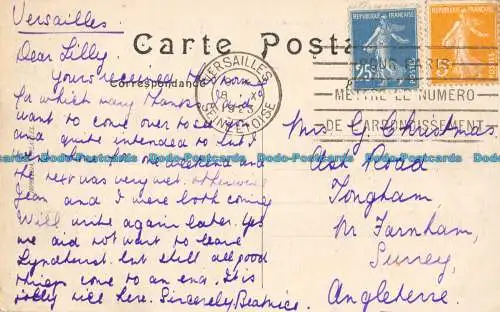 Versailles
Carte Postale
Correspondance
Dear Lilly.
Yours received this morn.
for which many thanks
want to come over to see you
and quite intended to but
weekend and
the rest was very wet. otherwise
Jean and I were both coming
Will write again later. Yes
we did not want to leave
Lyndhurst. but still all good
things come to an end. It is
jolly nice here. Sincerely Beatrice.
VERSAILLES
SEINE-ET-OISE
REPUBLIQUE FRANÇAISE
25c
REPUBLIQUE FRANÇAISE
5c
POUR PARIS
METTRE LE NUMÉRO
DE L'ARRONDISSEMENT
Mrs G Christmas
Ash Road
Tongham,
Nr Farnham,
Surrey,
Angleterre.
Dodo-Postcards